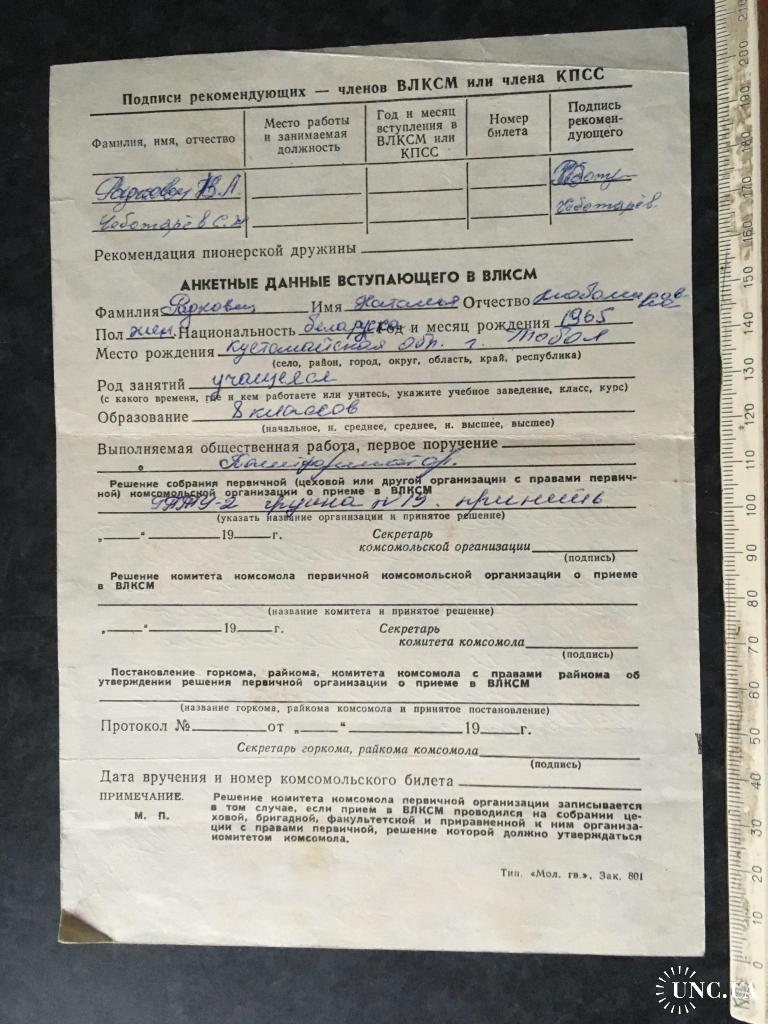 Подписи рекомендующих — членов ВЛКСМ или члена КПСС
Фамилия, имя, отчество
Место работы и занимаемая должность
Год и месяц вступления в ВЛКСМ или КПСС
Номер билета
Подпись рекомен-дующего
В.Л.
Чеботарёв С.Н. Чеботарёв
Рекомендация пионерской дружины
АНКЕТНЫЕ ДАННЫЕ ВСТУПАЮЩЕГО В ВЛКСМ
Фамилия Радковец Имя Наталья Отчество
Пол жен. Национальность беларуска Год и месяц рождения 1965
Место рождения Кустанайская обл. г. Тобол
(село, район, город, округ, область, край, республика)
Род занятий учащаяся
(с какого времени, где и кем работаете или учитесь, укажите учебное заведение, класс, курс)
Образование 8 классов
(начальное, н. среднее, среднее, н. высшее, высшее)
Выполняемая общественная работа, первое поручение
Политинформатор.
Решение собрания первичной (цеховой или другой организации с правами первич-
ной) комсомольской организации о приеме в ВЛКСМ
группа N 19. принять
(указать название организации и принятое решение)
„ “ 19 г. Секретарь
комсомольской организации
(подпись)
Решение комитета комсомола первичной комсомольской организации о приеме
в ВЛКСМ
(название комитета и принятое решение)
„ “ 19 г. Секретарь
комитета комсомола
(подпись)
Постановление горкома, райкома, комитета комсомола с правами райкома об
утверждении решения первичной организации о приеме в ВЛКСМ
(название горкома, райкома комсомола и принятое постановление)
Протокол № от „ “ 19 г.
Секретарь горкома, райкома комсомола
(подпись)
Дата вручения и номер комсомольского билета
ПРИМЕЧАНИЕ. Решение комитета комсомола первичной организации записывается
в том случае, если прием в ВЛКСМ проводился на собрании це-
М. П. ховой, бригадной, факультетской и приравненной к ним организа-
ции с правами первичной, решение которой должно утверждаться
комитетом комсомола.
Тип. «Мол. гв.». Зак. 801
210
200
190
180
170
160
150
140
130
120
110
100
90
80
70
60
50
40
30
20
10
0
UNC.UA